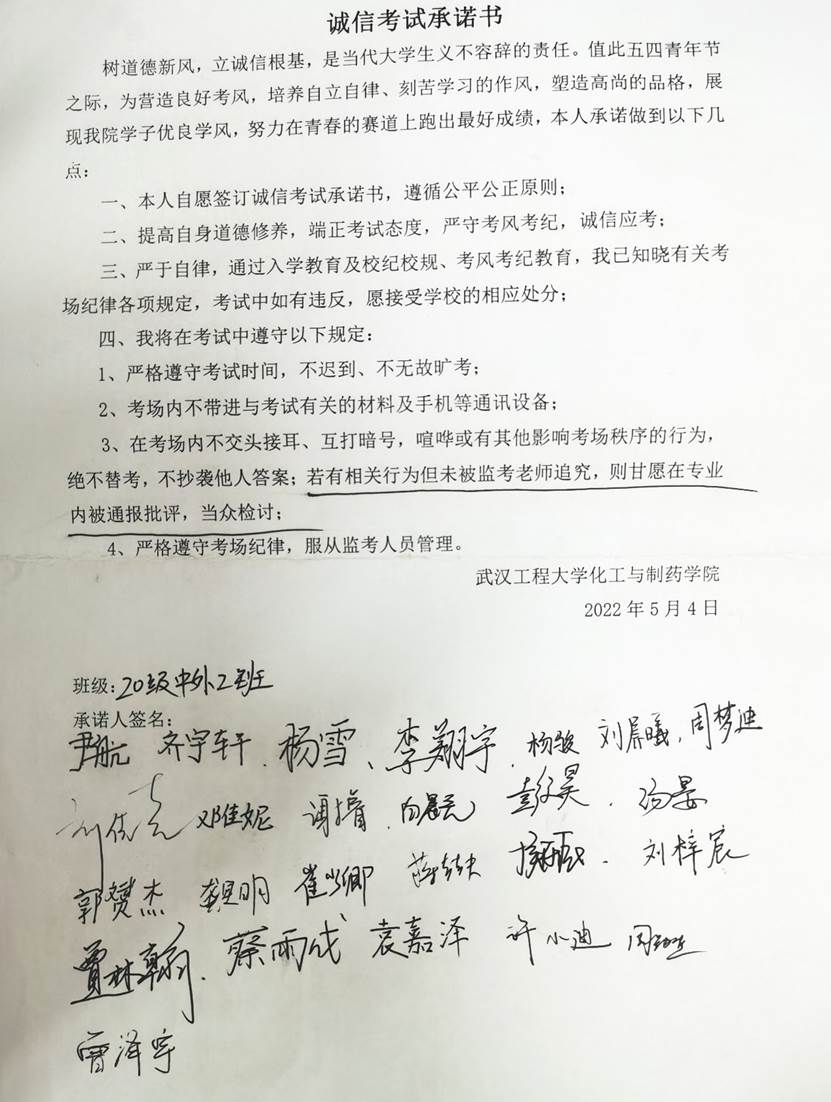 诚信考试承诺书
树道德新风，立诚信根基，是当代大学生义不容辞的责任。值此五四青年节
之际，为营造良好考风，培养自立自律、刻苦学习的作风，塑造高尚的品格，展
现我院学子优良学风，努力在青春的赛道上跑出最好成绩，本人承诺做到以下几
点：
一、本人自愿签订诚信考试承诺书，遵循公平公正原则；
二、提高自身道德修养，端正考试态度，严守考风考纪，诚信应考；
三、严于自律，通过入学教育及校纪校规、考风考纪教育，我已知晓有关考
场纪律各项规定，考试中如有违反，愿接受学校的相应处分；
四、我将在考试中遵守以下规定：
1、严格遵守考试时间，不迟到、不无故旷考；
2、考场内不带进与考试有关的材料及手机等通讯设备；
3、在考场内不交头接耳、互打暗号，喧哗或有其他影响考场秩序的行为，
绝不替考，不抄袭他人答案；若有相关行为但未被监考老师追究，则甘愿在专业
内被通报批评，当众检讨；
4、严格遵守考场纪律，服从监考人员管理。
武汉工程大学化工与制药学院
2022年5月4日
班级：20级中外2班
承诺人签名：
尹航 齐宇轩、杨雪、李翔宇、杨骏 刘晨曦，周梦迪
邓佳妮 彭文昊、汤晏
郭赟杰 龚明 刘梓宸
贾林翰、蔡雨成 袁嘉泽 许小迪
曹泽宇